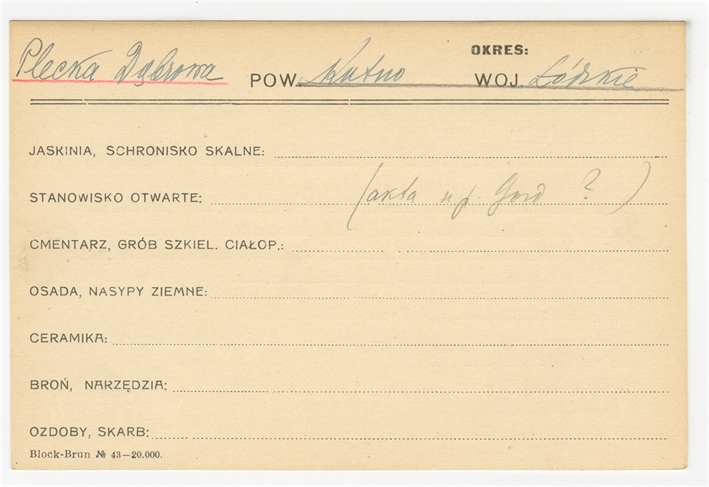 OKRES:
Plecka Dąbrowa POW. Kutno WOJ. Łódzkie
JASKINIA, SCHRONISKO SKALNE:
STANOWISKO OTWARTE: (akta u p. ?)
CMENTARZ, GRÓB SZKIEL. CIAŁOP.:
OSADA, NASYPY ZIEMNE:
CERAMIKA:
BROŃ, NARZĘDZIA:
OZDOBY, SKARB:
Block-Brun № 43—20.000.